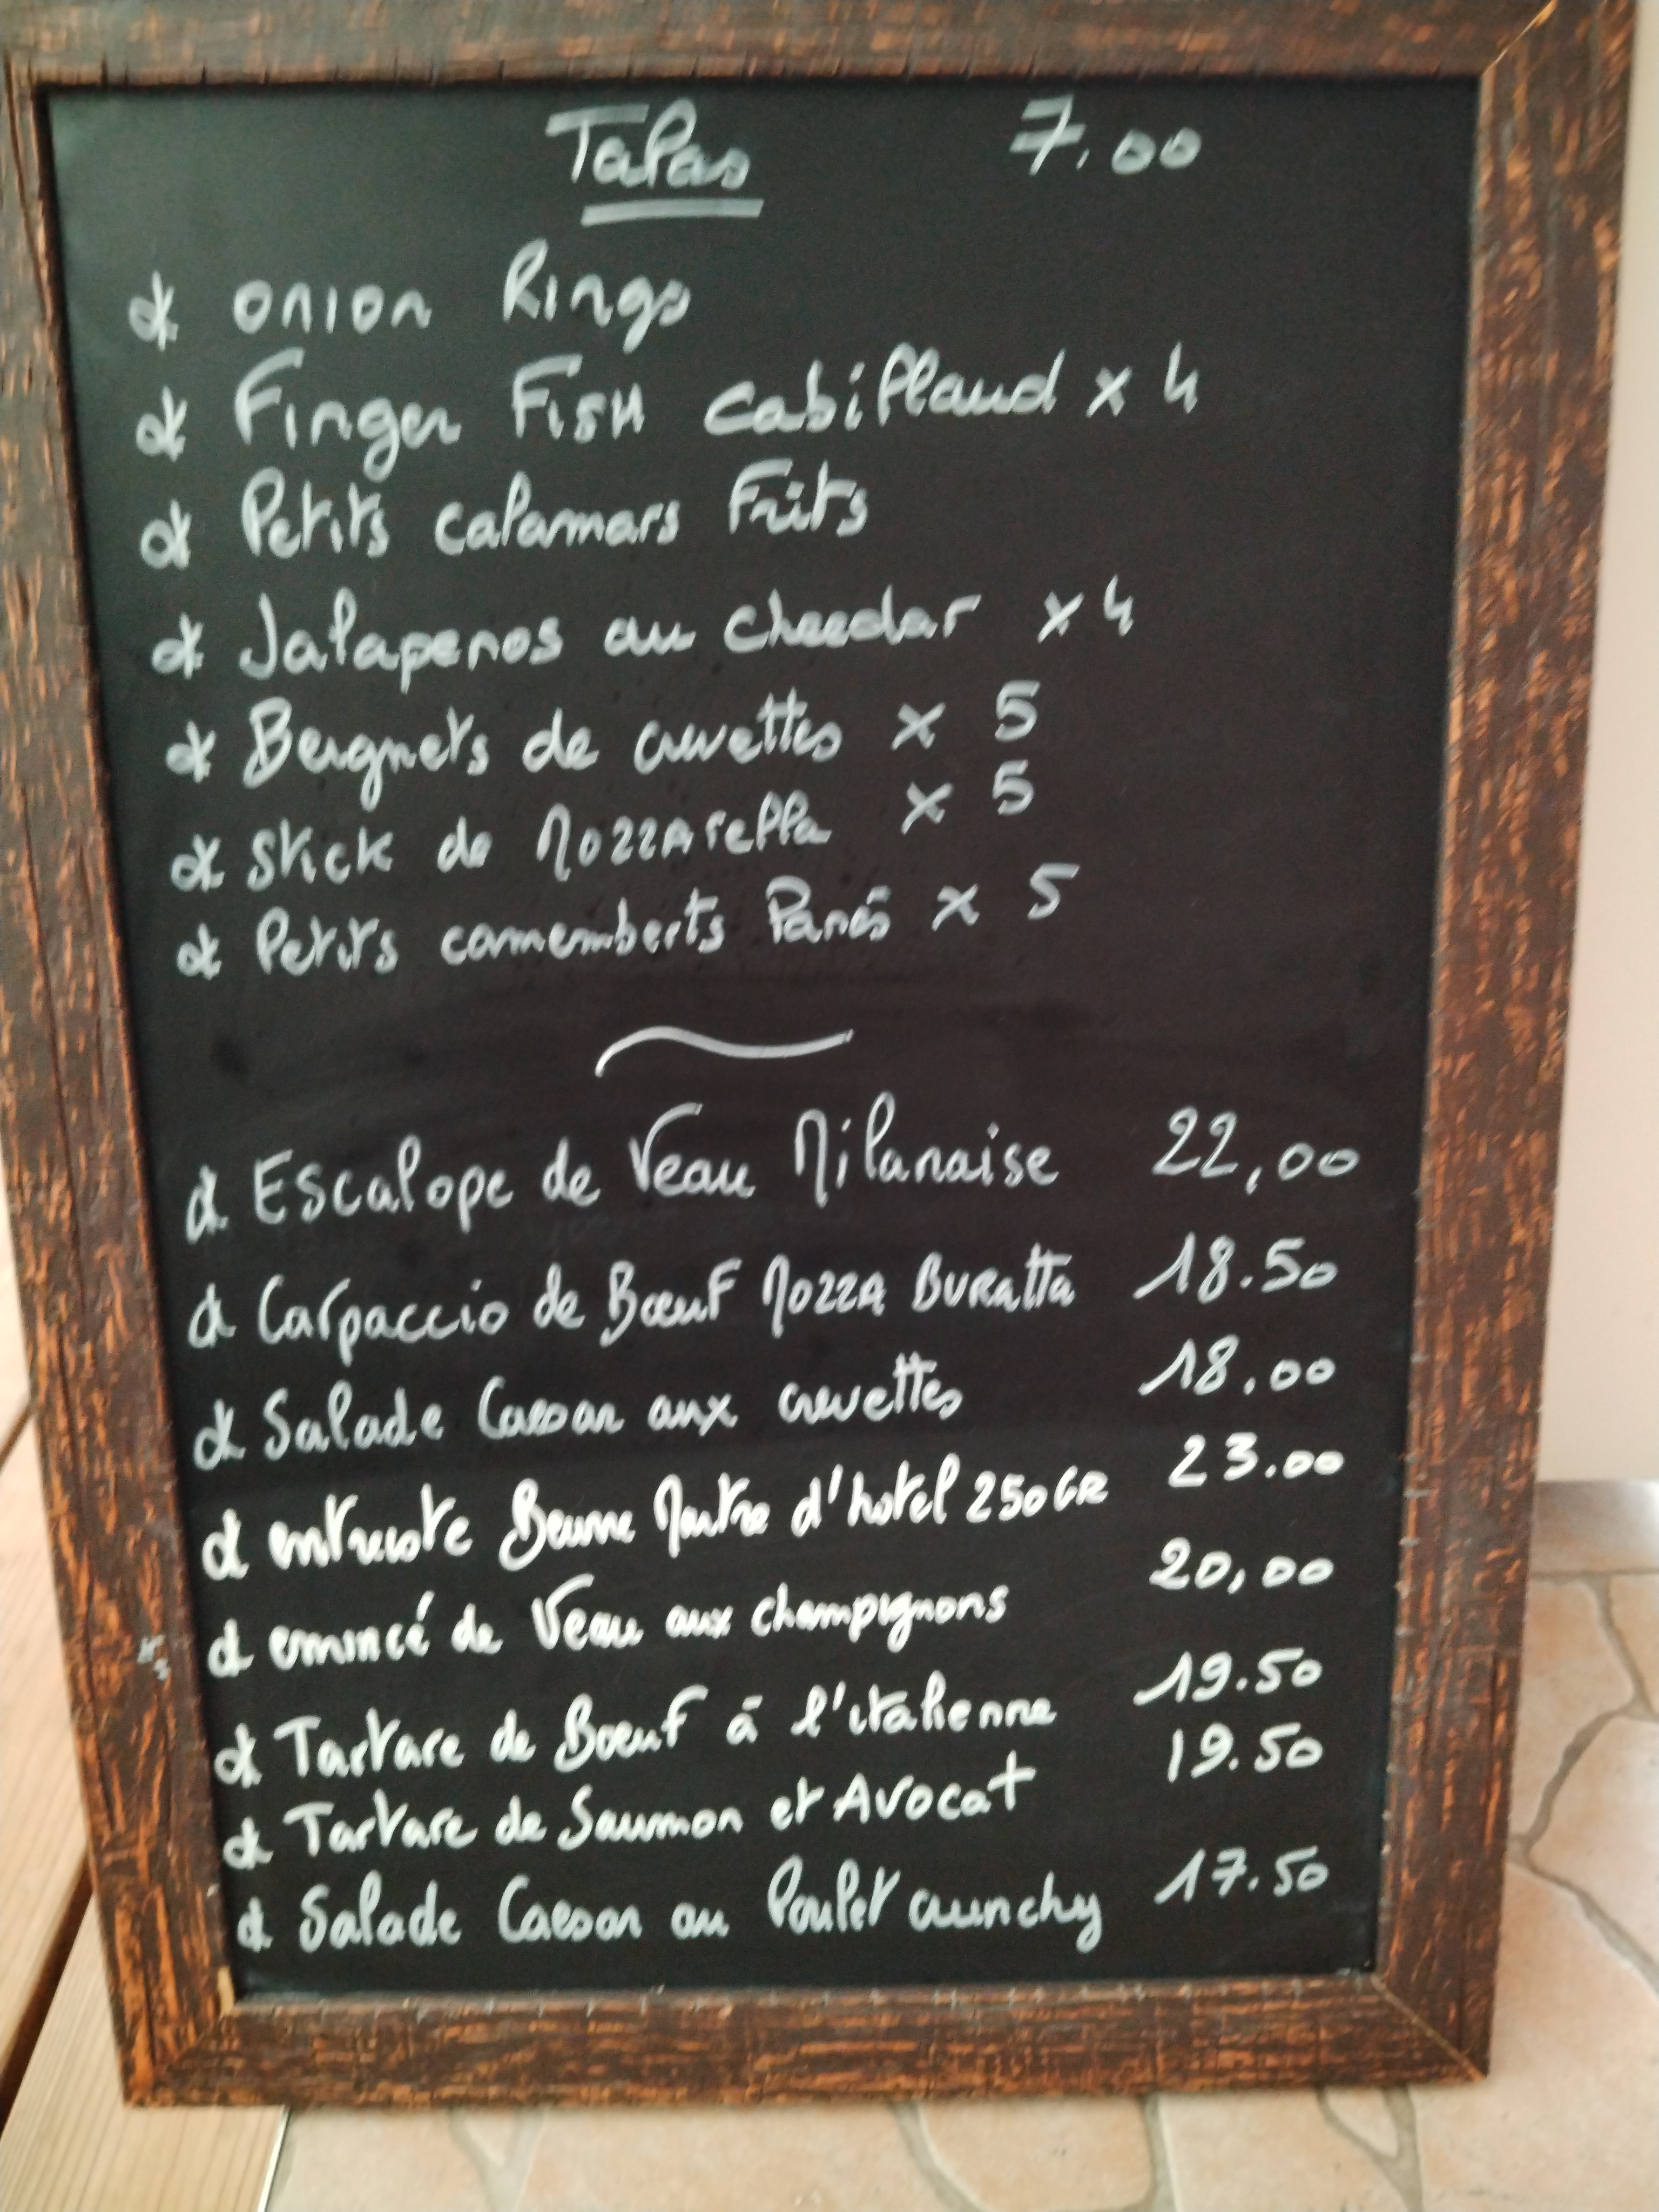 Tapas 7.00
onion Rings
Finger FisH cabillaud x 4
Petits calamars Frits
Jalapenos au cheedar x 4
Beignets de crevettes x 5
stick de Mozzarella x 5
Petits camemberts Panés x 5
Escalope de Veau Milanaise 22,00
Carpaccio de Bœuf Mozza Buratta 18.50
Salade Caesar aux crevettes 18.00
entrecote Beurre Maitre d'hotel 250GR 23.00
emincé de Veau aux champignons 20,00
Tartare de Boeuf à l'italienne 19.50
Tartare de Saumon et Avocat 19.50
Salade Caesar au Poulet crunchy 17.50